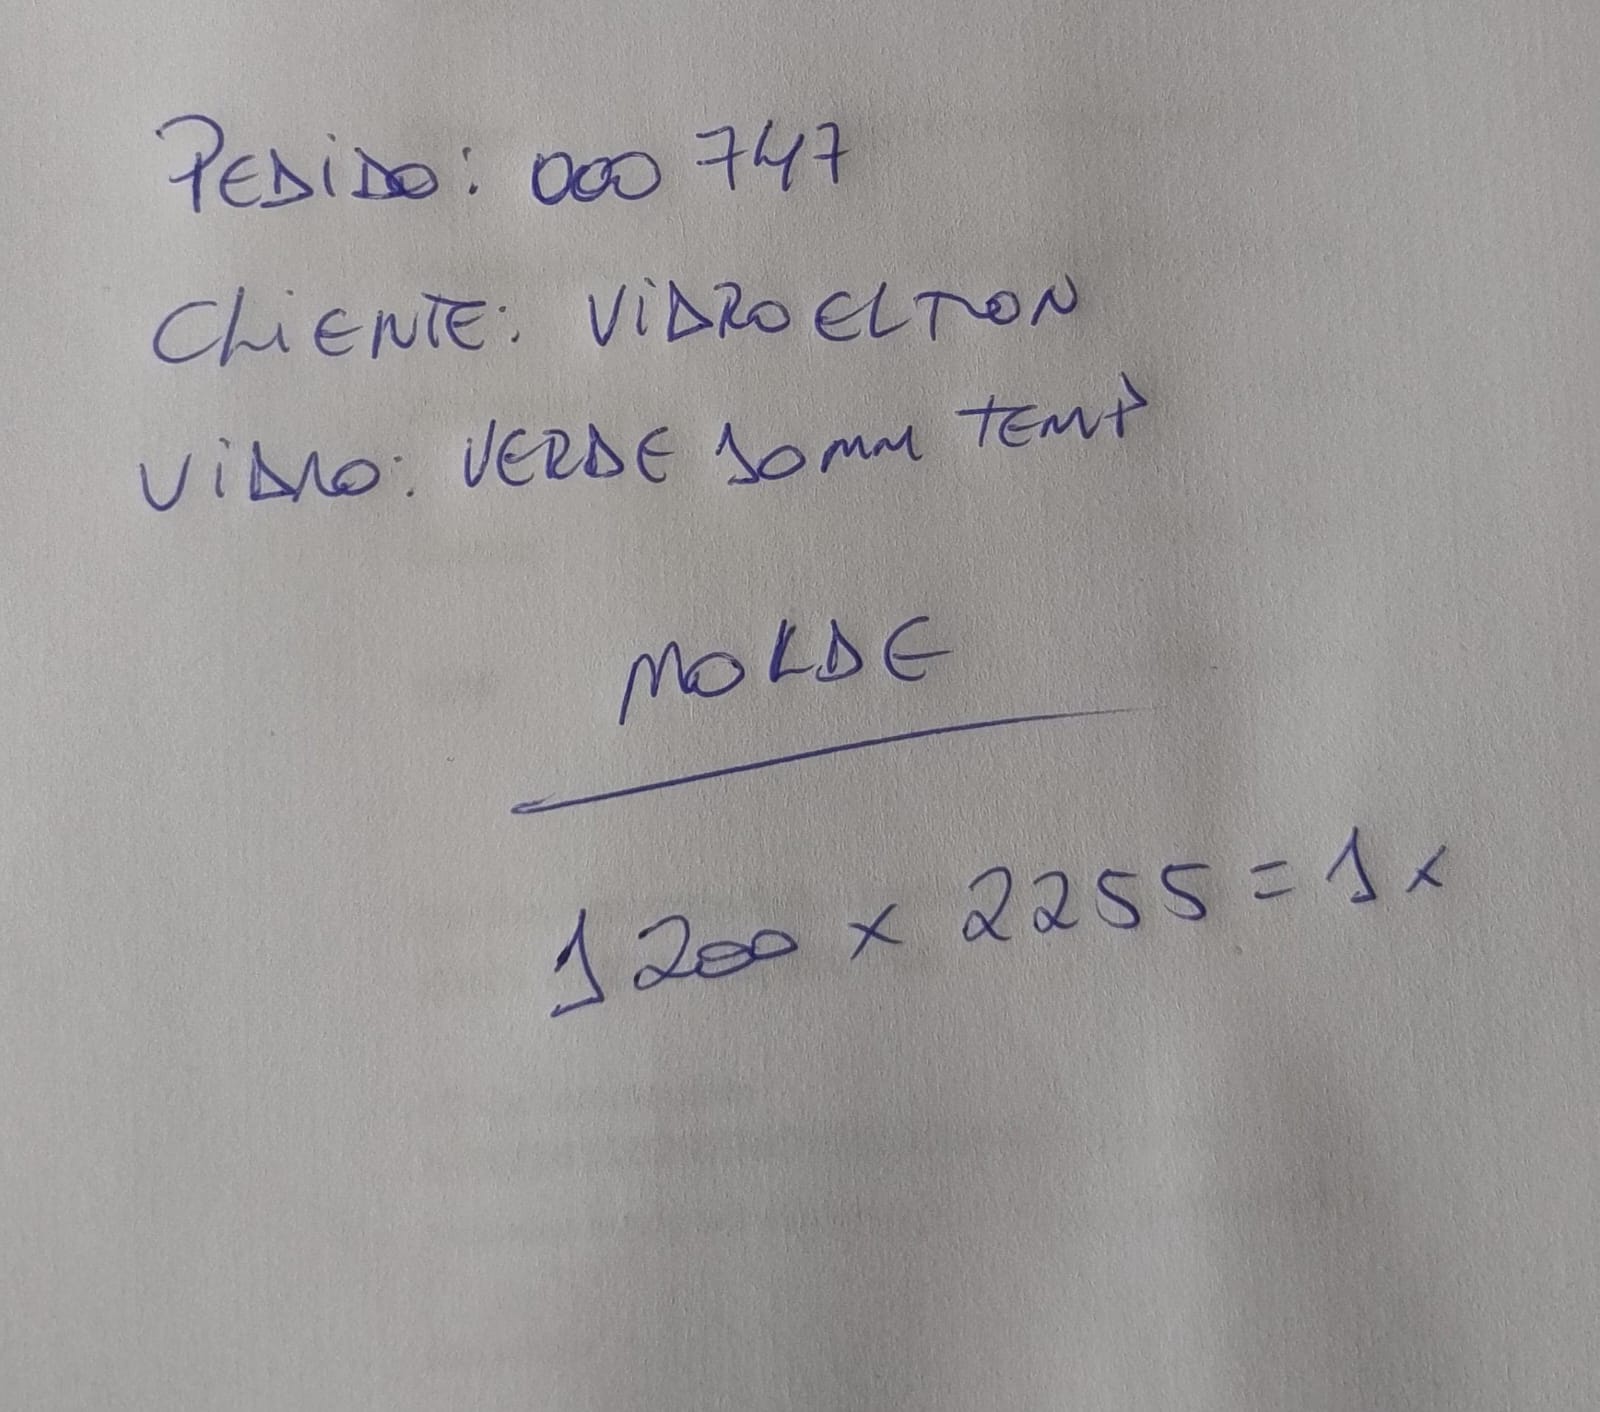 PEDIDO: 000747
CLIENTE: VIDROELTON
VIDRO: VERDE 10MM TEMP
MOLDE
1200 x 2255 = 1x